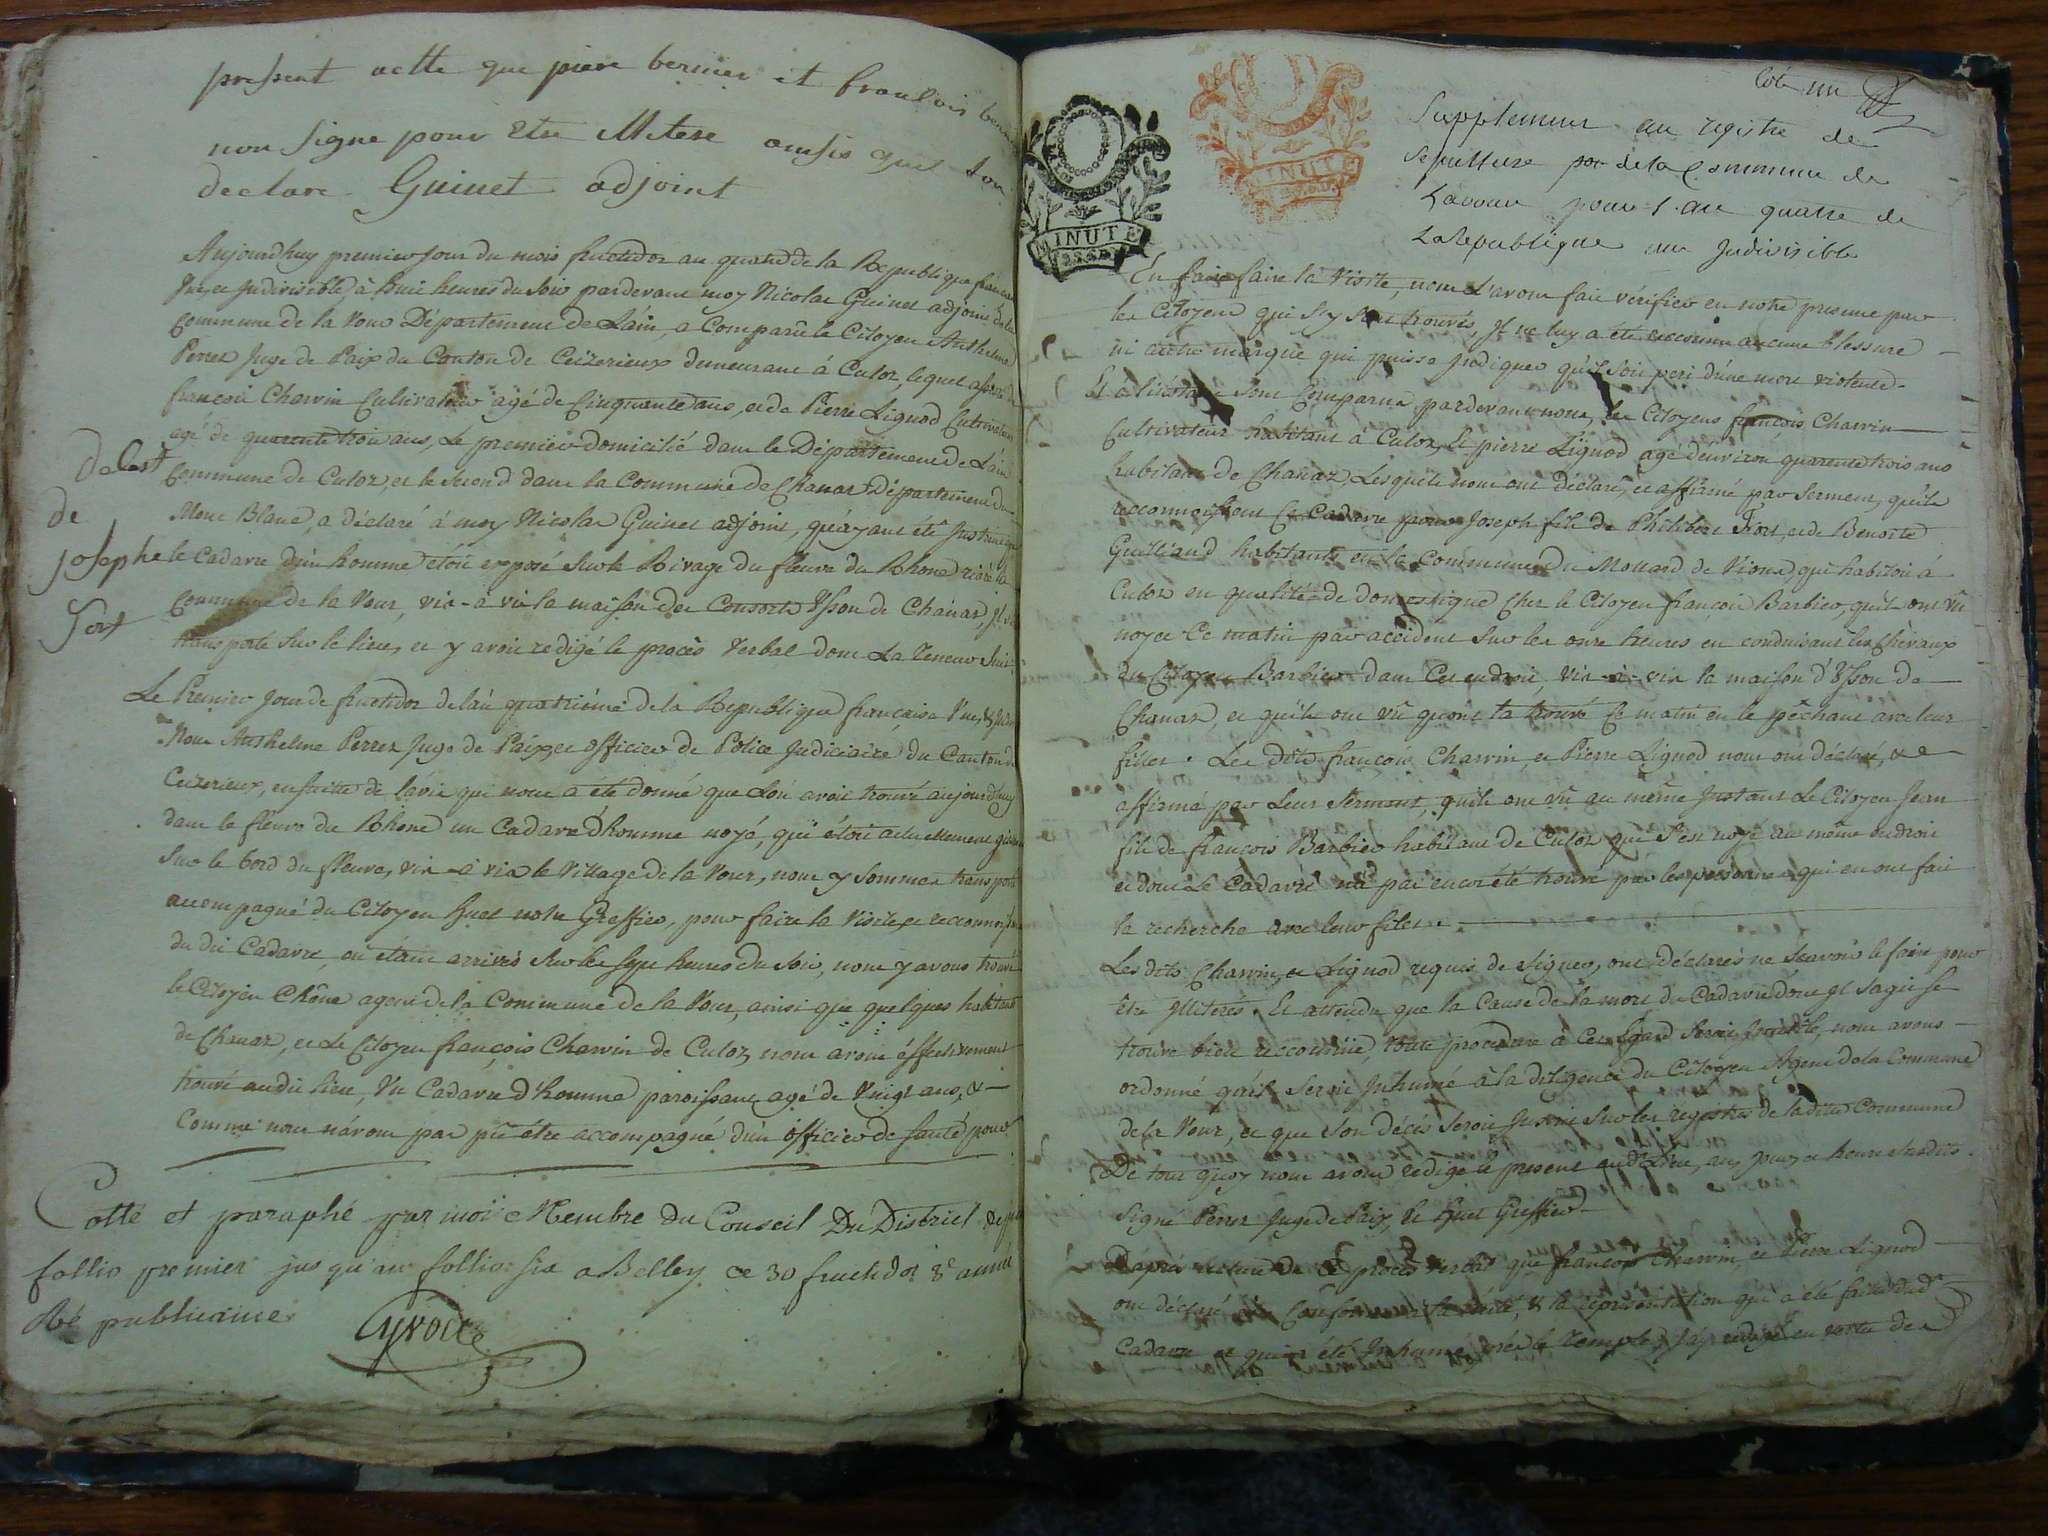 pressent actte que piere bernier et francois
non signe pour Etre illitere ainsis quil
declare Guinet adjoint
Aujourdhuy premier Jour du mois fructidor an quatre de la Republique
Une et Judivisible, à huit heures du Soir pardevant moy Nicolas Guinet adjoint de la
Commune de la Vour Département de L'ain, a Comparû le Citoyen Anthelme
Perret Juge de Paix du Canton de Ceizerieux demeurant à Culoz, lequel
françois Charvin Cultivateur agé de Cinquante ans, et de Pierre Lignod Cultivateur
agé de quarente trois ans, Le premier domicilié dans le Département de L'ain
Commune de Culoz, et le Second dans la Commune de Chanaz Département du
Mont Blanc, a déclaré à moy Nicolas Guinet adjoint, qu'ayant été
le Cadavre d'un homme étoit exposé sur le Rivage du fleuve du Rhone
Commune de la Vour, vis-à-vis la maison des Consorts Ysson de Chanaz,
transporté Sur le lieu, et y avoir redigé le procès Verbal dont La Teneur Suit
Decest
de
josephe
fort
Le Premier Jour de fructidor de l'an quatriéme de la Republique française
Nous Anthelme Perret Juge de Paix, et officier de Police Judiciaire, du Canton de
Ceizerieux, ensuitte de l'avis qui nous a été donné que L'on avoit trouvé aujourdhuy
dans le fleuve du Rhone un Cadavre d'homme noyé, qui étoit actuellement
Sur le bord du fleuve, vis-à-vis le Village de la Vour, nous y Sommes transporté
accompagné du Citoyen Huet notre Greffier, pour faire la Visite et
du dit Cadavre, ou étant arrivés Sur les Sept heures du Soir, nous y avons trouvé
le Citoyen Chêne agent de la Commune de la Vour, ainsi que quelques habitants
de Chanaz, et Le Citoyen françois Charvin de Culoz, nous avons éffectivement
trouvé audit lieu, Un Cadavre d'homme paroissant agé de Vingt ans, &
Comme nous n'avons pas pû être accompagné d'un officier de Santé pour
Cotté et paraphé par moi Membre du Conseil Du District
follio premier jus qu'au follio six a Belley ce 30 fructidor 3e année
Républicaine
Cote un
Supplement au registre de
sepulture de la Commune de
Lavour pour l an quatre de
La Republique une Judivisible
MINUTE
MINUTE
En faire la Visite, nous L'avons fait vérifier en notre presence par
les Citoyens qui s'y sont trouvés, Jl ne luy a été reconnu aucune blessure
ni autre marque qui puisse Jndiquer qu'il Soit peri d'une mort violente.
Et à l'instant Sont Comparus pardevant nous, les Citoyens françois Charvin
Cultivateur habitant à Culoz, et pierre Lignod agé d'environ quarente trois ans
habitant de Chanaz, Lesquels nous ont déclaré, et affirmé par Serment, qu'ils
reconnoissent Ce Cadavre pour Joseph fils de Philibert Fort, et de Benoite
Guilliand habitants en la Commune du Mollard de Vions, qui habitoit à
Culoz en qualité de domestique Chez le Citoyen françois Barbier, qu'ils ont vû
noyer Ce matin par accident Sur les onze heures en conduisant les Chevaux
du Citoyen Barbier dans Cet endroit, vis-à-vis la maison d'Ysson de
Chanaz, et qu'ils ont vû qu'on la trouvé Ce matin en le pêchant avec leur
filets. Les dits françois Charvin, et Pierre Lignod nous ont déclaré, &
affirmé par Leur Serment, qu'ils ont vû au même Jnstant Le Citoyen Jean
fils de françois Barbier habitant de Culoz qui S'est noyé au même endroit
et dont Le Cadavre n'a pas encor été trouvé par les personnes qui en ont fait
la recherche avec leur filets.
Lesdits Charvin, et Lignod requis de Signer, ont déclarés ne Scavoir le faire pour
être Jllitérés. Et attendu que la Cause de la mort du Cadavre dont Jl S'agit se
trouve bien reconnüe, toute procedure à Cet égard Seroit Jnutile, nous avons
ordonné qu'il Seroit Jnhumé à la diligence du Citoyen Agent de la Commune
de la Vour, et que Son décès Seroit Jnscrit Sur les registres de ladite Commune
De tout quoy nous avons redigé le present audit Lieu, an, jour, et heure Susdits.
Signé Perret Juge de Paix, et Huet Greffier
D'après lecture de Ce procès verbal que françois Charvin, et Pierre Lignod
ont déclaré Conforme à la vérité, & la représentation qui a été faite dudt
Cadavre et qui a été Jnhumé près le Temple, J'ay redigé en vertu des